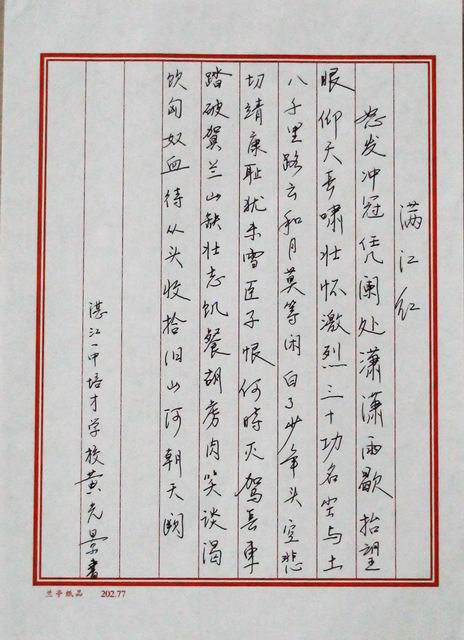 满江红
怒发冲冠凭阑处潇潇雨歇抬望
眼仰天长啸壮怀激烈三十功名尘与土
八千里路云和月莫等闲白了少年头空悲
切靖康耻犹未雪臣子恨何時灭驾长車
踏破贺兰山缺壮志饥餐胡虏肉笑谈渴
饮匈奴血待从头收拾旧山河朝天阙
湛江一中培才学校黄光景書
兰亭纸品 202.77